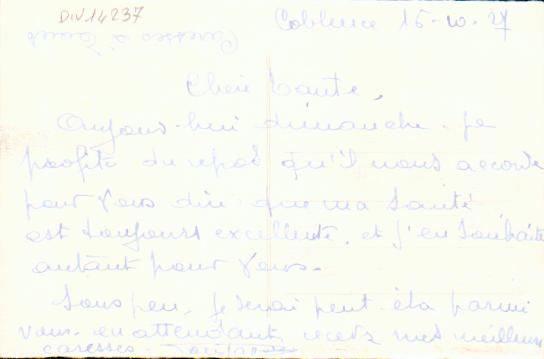 DIV.14237
Coblence 16-10-27
Caresses à Tous
Chère Tante,
Aujour-hui dimanche je
profite du repos qu'il nous accorde
pour vous dire que ma santé
est toujours excellente, et j'en souhaite
autant pour vous.
Sous peu, je serai peut-être parmi
vous en attendant recevez mes meilleurs
caresses